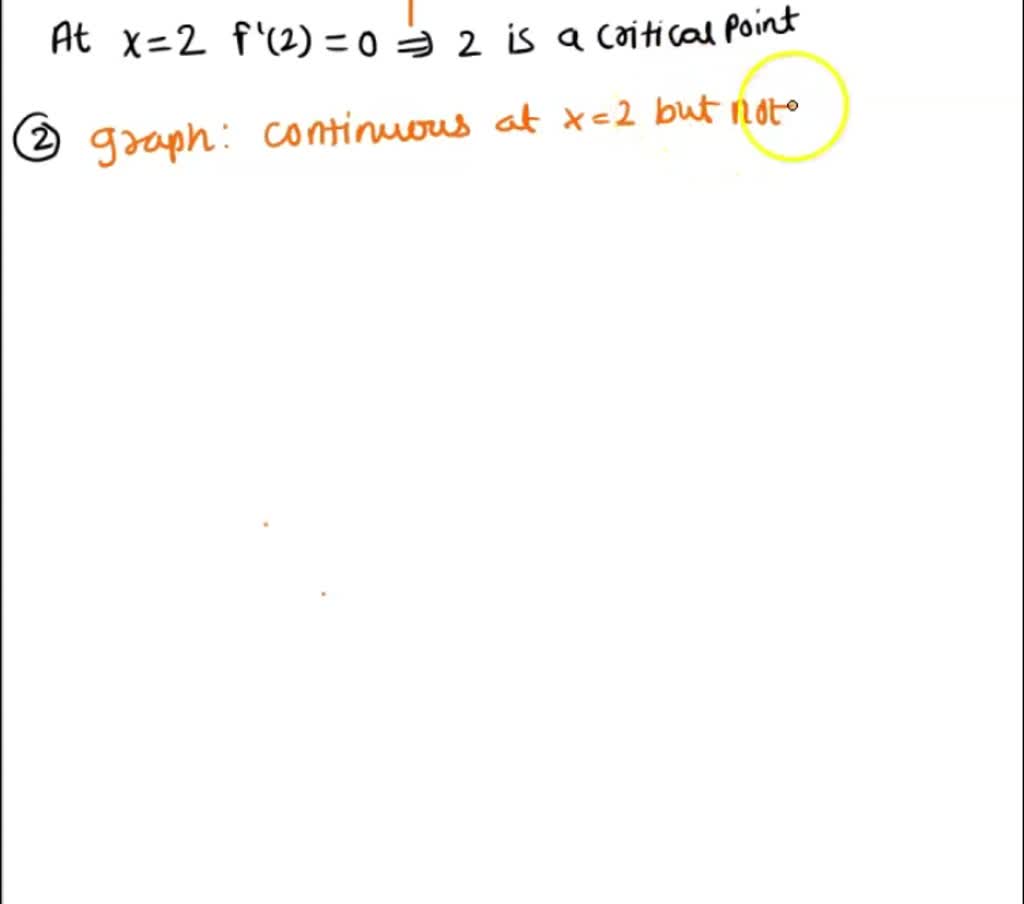 At x=2 f'(2) = 0 ⇒ 2 is a critical point
② graph: continuous at x=2 but not